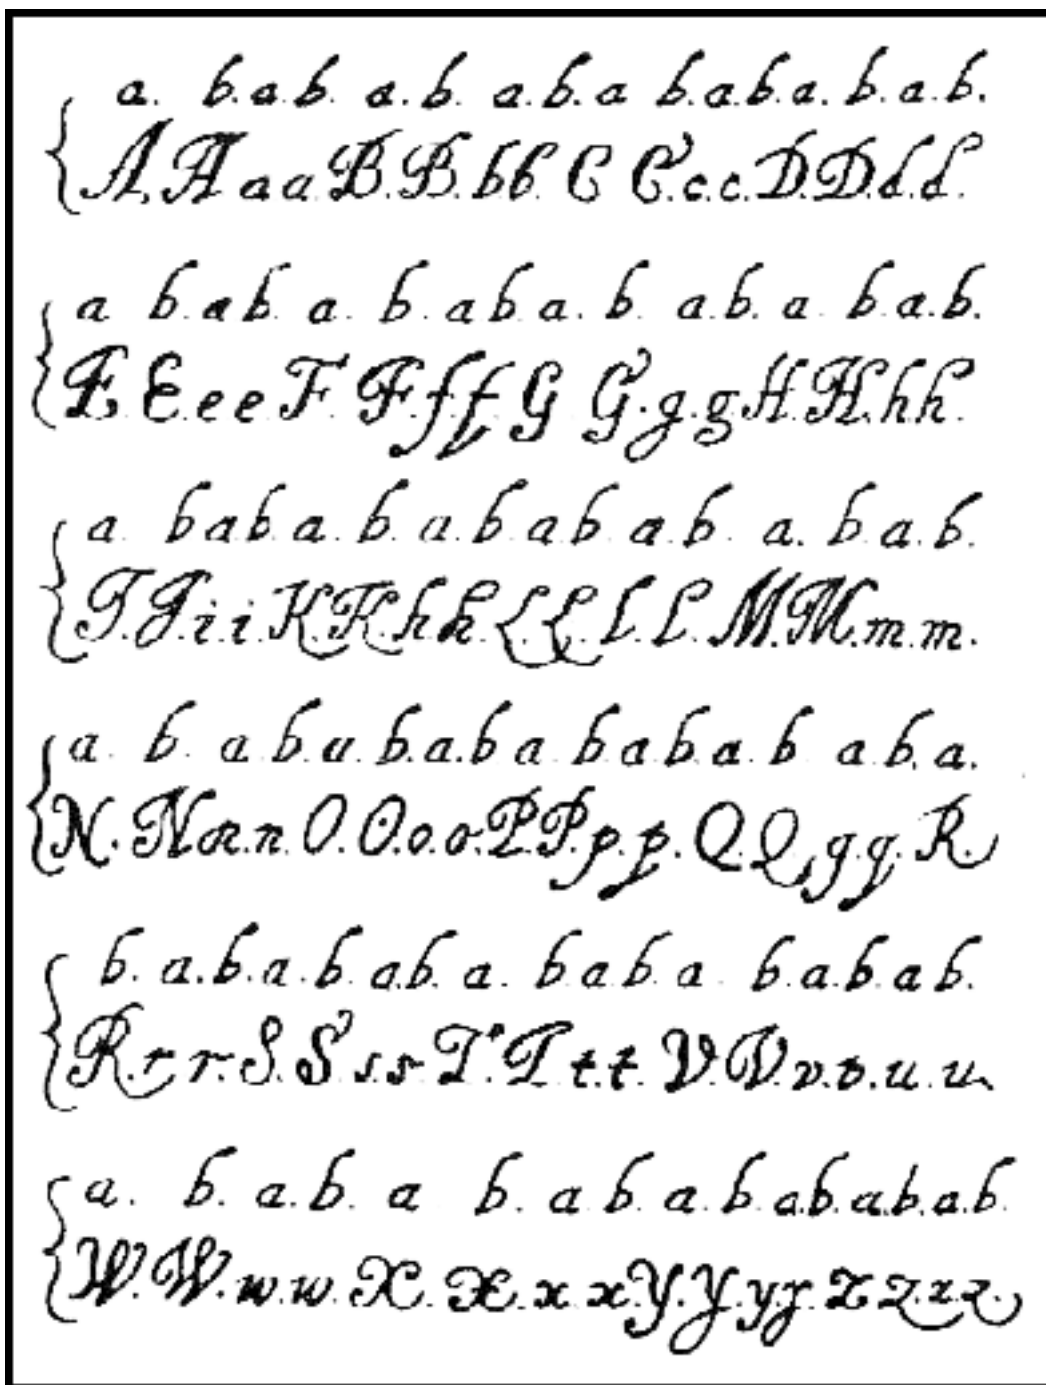 a. b. a. b. a. b. a. b. a b. a. b. a. b. a. b.
A. A a a. B. B. b b. C C. c. c. D. D. d. d.
a b. a b. a. b. a b a. b. a b. a b a. b.
E E. e e F F. f f G G. g. g H. H. h h.
a. b a b a. b. a. b a b a. b. a. b a. b.
I. I. i i. K. K. k k. L. L. l. l. M. M. m. m.
a. b. a b a. b. a. b a b a b. a. b a b. a.
N. N n. n. O. O. o. o. P. P. p. p. Q. Q, q. q. R.
b. a. b. a. b. a. b. a. b a b. a b. a. b. a b.
R. r r. S. S s. s T. T t. t. V. V. v. v. u. u.
a. b. a. b. a b. a b. a. b. a. b. a. b. a. b.
W. W. w. w. X. X. x x. Y. Y. y. y. Z Z. z. z.